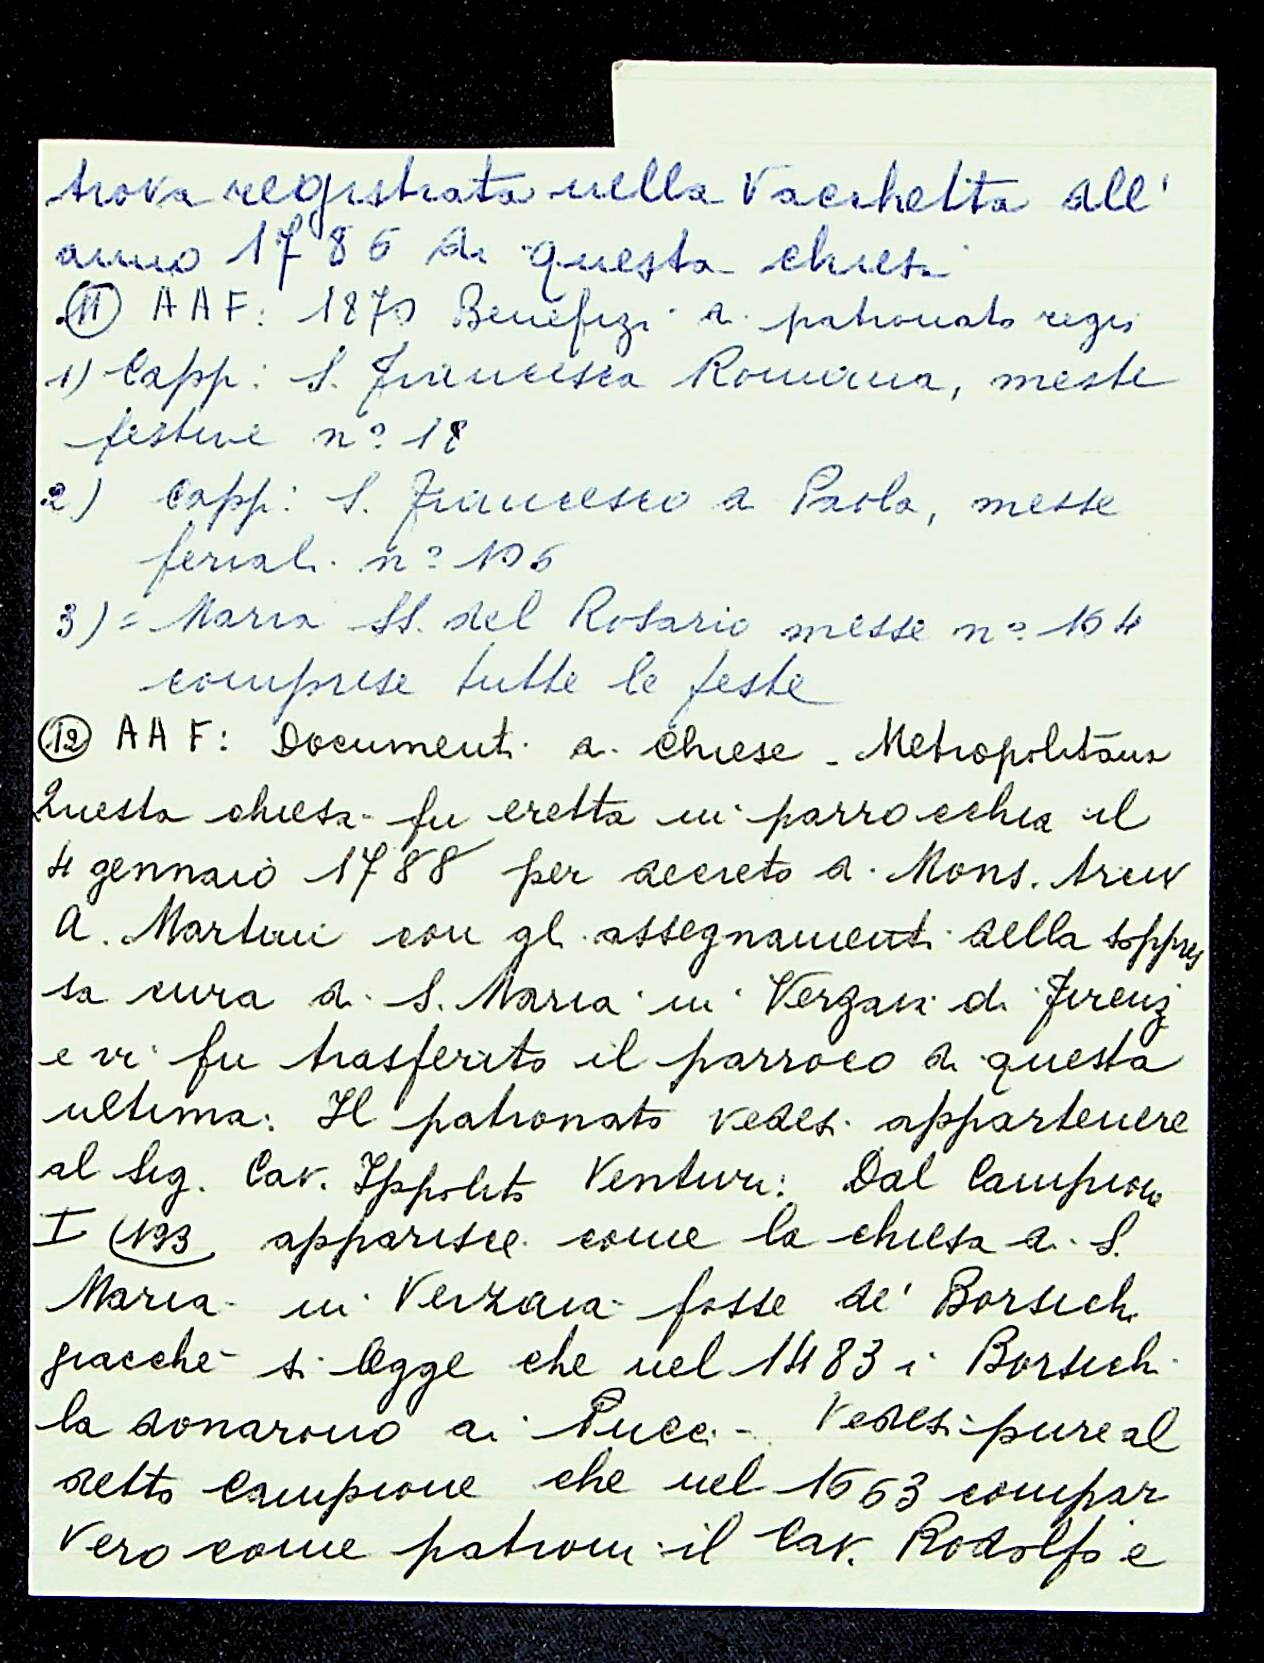 trova registrata nella Vacchetta all'
anno 1786 di questa chiesa
(11) AAF: 1870 Benefizi di patronato regi
1) Capp: S. Francesca Romana, messe
festive n° 18
2) Capp: S. Francesco di Paola, messe
feriali n° 106
3) = Maria SS. del Rosario messe n° 104
comprese tutte le feste
(12) AAF: Documenti di chiese - Metropolitana
Questa chiesa fu eretta in parrocchia il
4 gennaio 1788 per decreto di Mons. Arciv
A. Martini con gli assegnamenti della soppres
sa cura di S. Maria in Verzaia di Firenz
e vi fu trasferito il parroco di questa
ultima: Il patronato vedesi appartenere
al Sig. Cav. Ippolito Venturi: Dal Campione
I (193 apparisce come la chiesa di S.
Maria in Verzaia fosse de' Borsichi
giacché si legge che nel 1483 i Borsichi
la donarono ai Pucci - Vedesi pure al
detto Campione che nel 1663 compar
vero come patroni il Cav. Rodolfo e